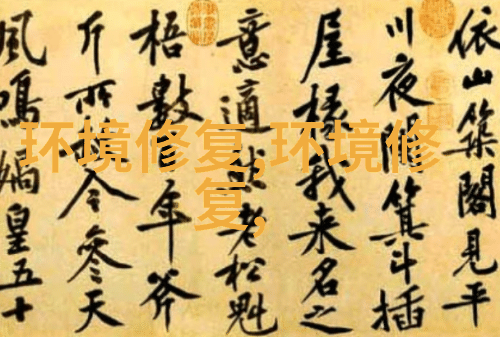 依山築閣見平
川夜闌箕斗插
屋椽我來名之
意適然老松魁
梧數百年斧
斤所赦今參天
風鳴媧皇五十
环境修复,环境修
复,